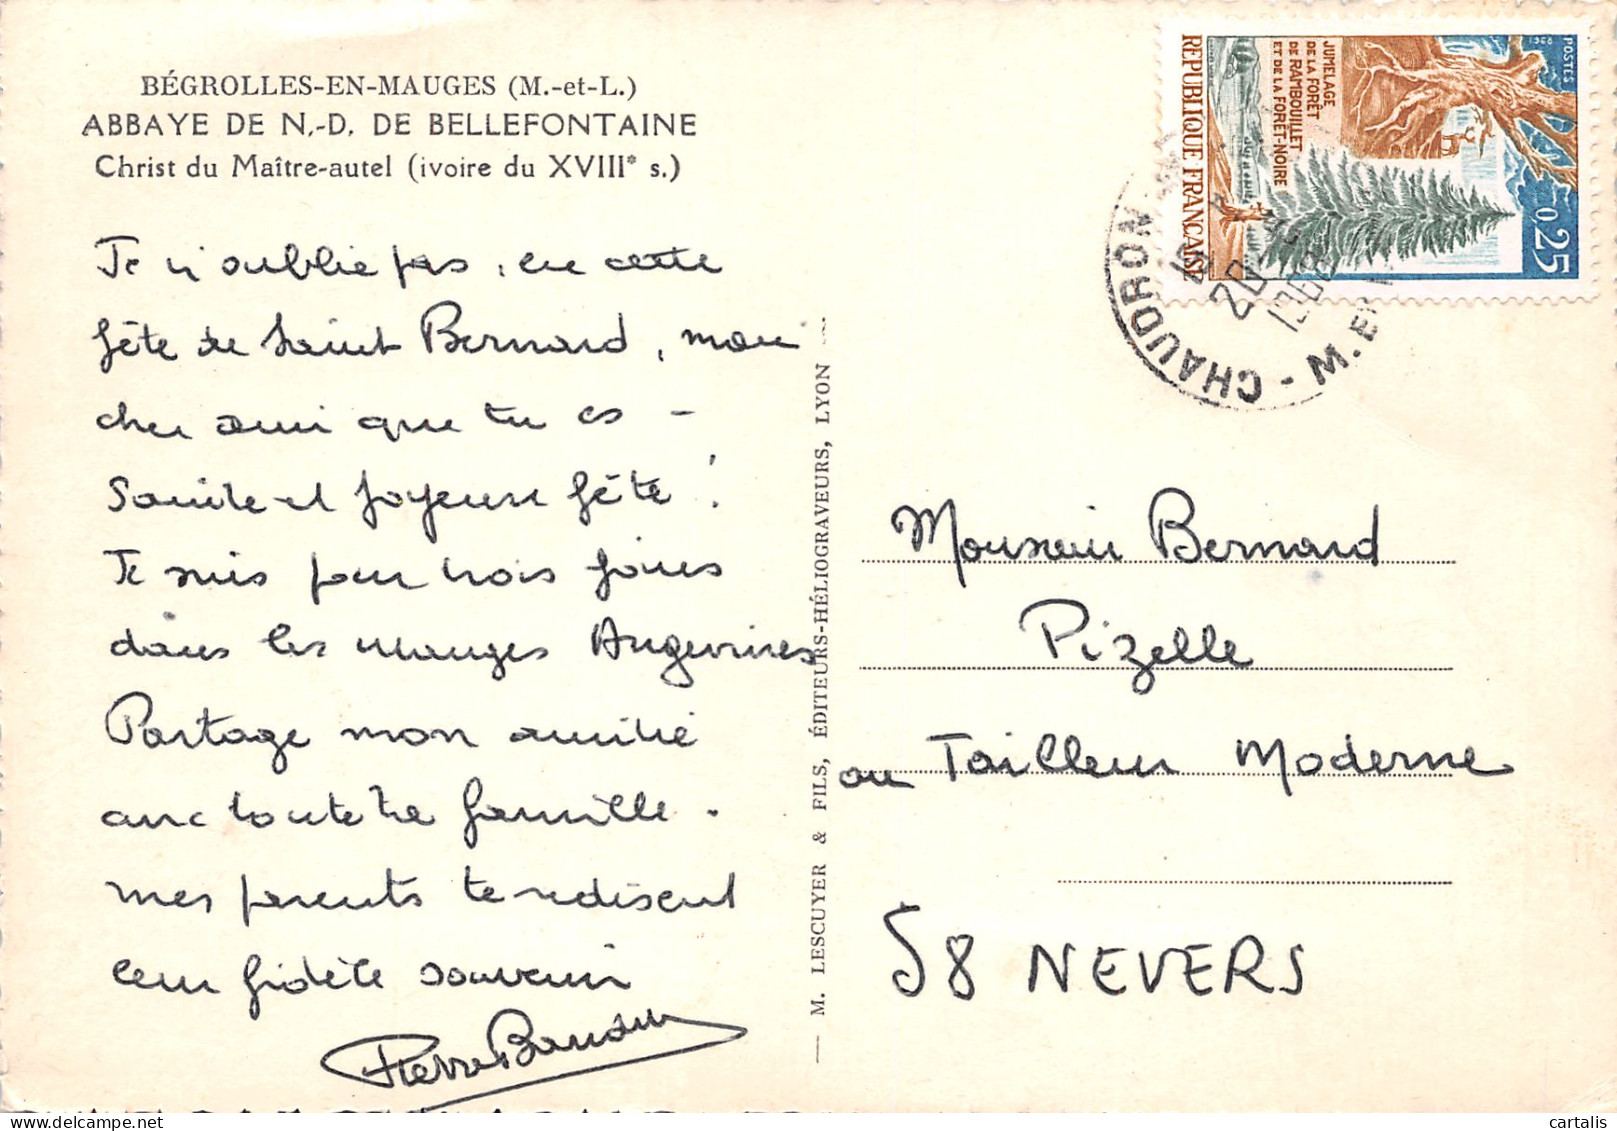 BÉGROLLES-EN-MAUGES (M.-et-L.)
ABBAYE DE N.-D. DE BELLEFONTAINE
Christ du Maître-autel (ivoire du XVIIIe s.)
Je n'oublie pas, en cette
fête de Saint Bernard, mon
cher ami que tu es -
Sainte et joyeuse fête !
Je suis pour trois jours
dans les Mauges Angevines
Partage mon amitié
avec toute ta famille.
mes parents te redisent
leur fidèle souvenir
Pierre
M. LESCUYER & FILS, ÉDITEURS-HÉLIOGRAVEURS, LYON
POSTES
1968
JUMELAGE
DE LA FORÊT
DE RAMBOUILLET
ET DE LA FORÊT-NOIRE
0,25
REPUBLIQUE FRANÇAISE
CHAUDRON - M. ET
20
1968
Monsieur Bernard
Pizelle
au Tailleur Moderne
58 NEVERS
cartalis